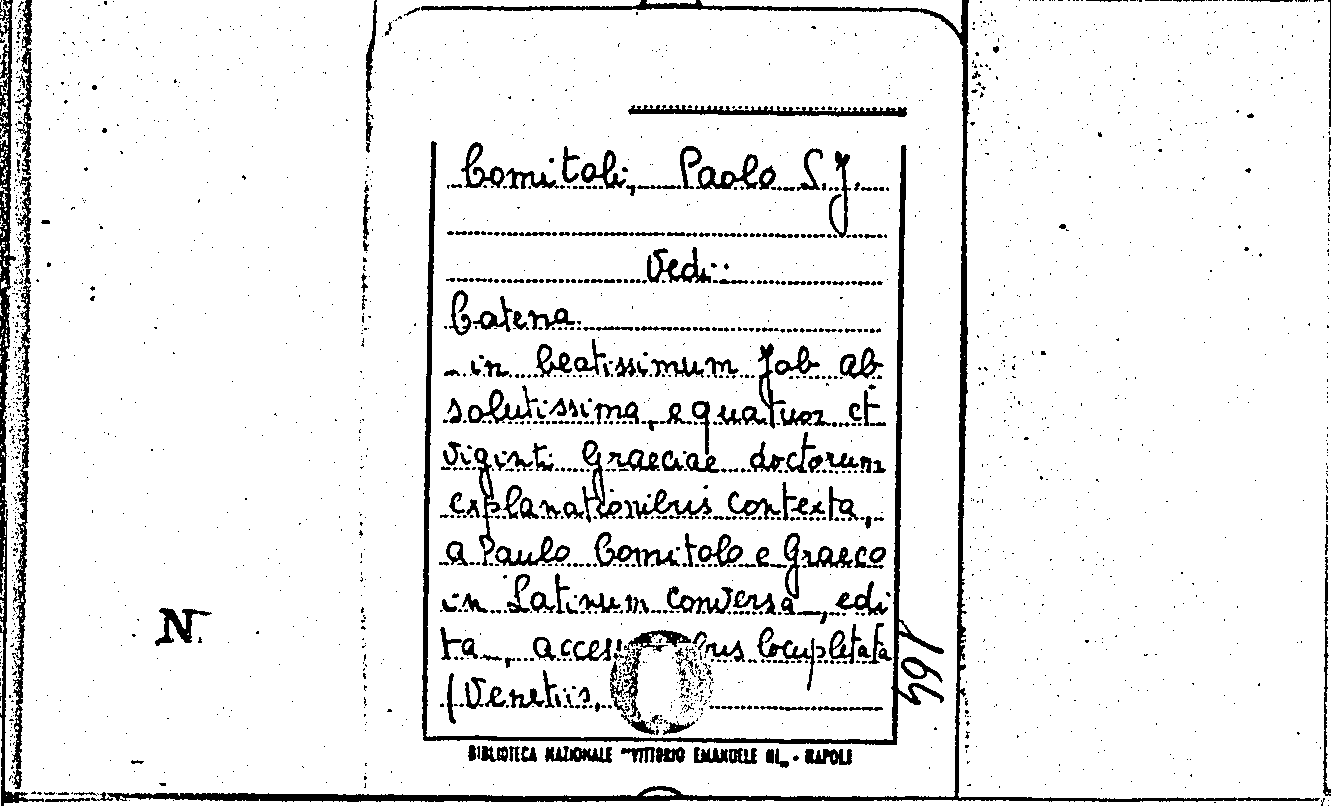 Comitoli, Paolo S.J.
Vedi:
Catena
in beatissimum Job ab
solutissima, e quatuor et
viginti Graeciae doctorum
explanationibus contexta,
a Paulo Comitolo e Graeco
in Latinum conversa, edi
ta, locupletata
(Venetiis,
N.
164
BIBLIOTECA NAZIONALE "VITTORIO EMANUELE III„ - NAPOLI